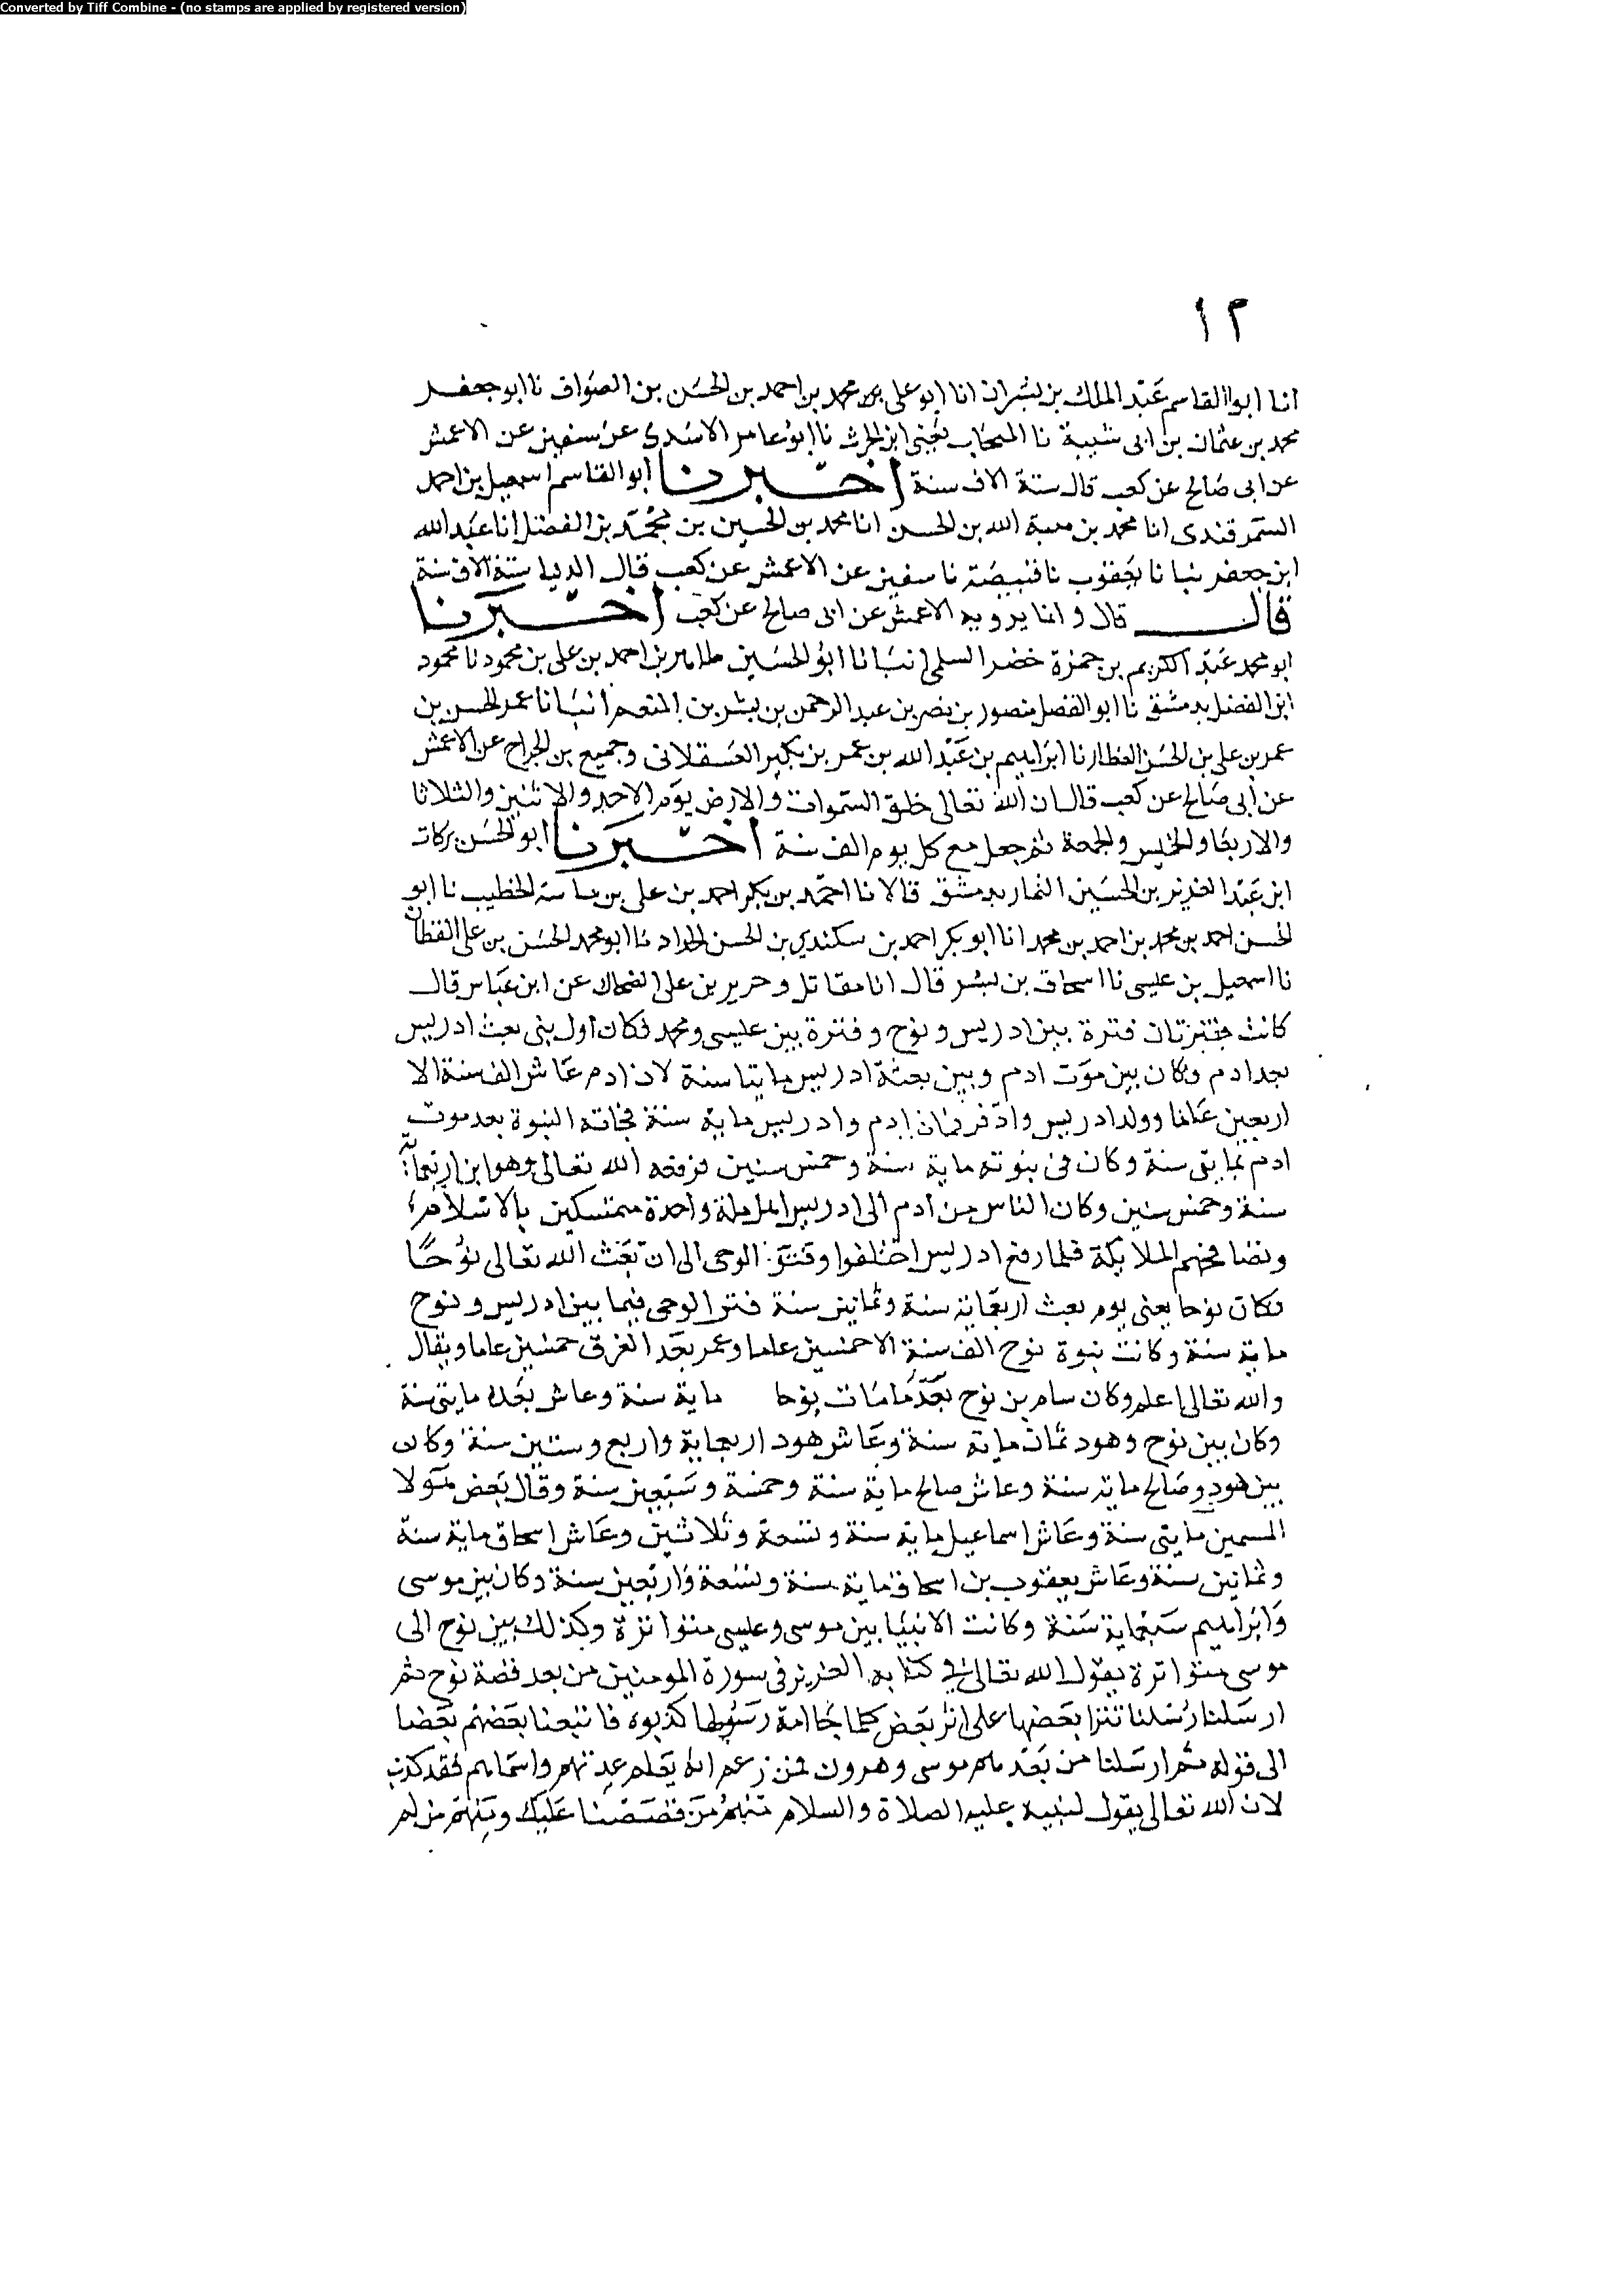 Converted by Tiff Combine - (no stamps are applied by registered version)
١٢
انا ابو القاسم عبد الملك بن بشران انا ابو على محمد بن احمد بن الحسن بن الصواف نا ابو جعفر
محمد بن عثمان بن ابى شيبة نا المنجاب يعنى ابن الحرث نا ابو عامر الاسدى عن سفين عن الاعمش
عن ابى صالح عن كعب قال ستة الاف سنة اخبرنا ابو القاسم اسمعيل بن احمد
السمرقندى انا محمد بن هبة الله بن الحسن انا محمد بن الحسين بن محمد بن الفضل انا عبد الله
ابن جعفر نا يعقوب نا قبيصة نا سفين عن الاعمش عن كعب قال الدنيا ستة الاف سنة
قال قال وانا يرويه الاعمش عن ابى صالح عن كعب اخبرنا
ابو محمد عبد الكريم بن حمزة خضر السلمى انبانا ابو الحسين طاهر بن احمد بن على بن محمود نا محمود
ابن الفضل بدمشق نا ابو الفضل منصور بن نصر بن عبد الرحمن بن بشر بن المنعم انبانا عمر الحسن بن
عمر بن على بن الحسن العطار نا ابراهيم بن عبد الله بن عمر بن بكير العسقلانى وجميع بن الجراح عن الاعمش
عن ابى صالح عن كعب قال ان الله تعالى خلق السموات والارض يوم الاحد والاثنين والثلاثا
والاربعا والخميس والجمعة ثم جعل مع كل يوم الف سنة اخبرنا ابو الحسن بركات
ابن عبد العزيز بن الحسين النمار بدمشق قالا نا احمد بن بكر احمد بن على بن الخطيب نا ابو
الحسن احمد بن محمد بن احمد بن محمد انا ابو بكر احمد بن سكندي بن الحسن الحداد نا ابو محمد الحسن بن على القطان
نا اسمعيل بن عيسى نا اسحاق بن بشر قال انا مقاتل وحرير بن على الضحاك عن ابن عباس قال
كانت فترتان فترة بين ادريس ونوح وفترة بين عيسى ومحمد فكان اول نبى بعث ادريس
بعد ادم وكان بين موت ادم وبين بعثة ادريس مايتا سنة لان ادم عاش الف سنة الا
اربعين عاما وولد ادريس وادم ادم وادريس ماية سنة فجاته النبوة بعد موت
ادم بمايتى سنة وكان فى نبوته ماية سنة وخمس سنين فرفعه الله تعالى وهو ابن اربعماية
سنة وخمس سنين وكان الناس من ادم الى ادريس اهل ملة واحدة متمسكين بالاسلام
وتصافحهم الملايكة فلما رفع ادريس اختلفوا وفتر الوحى الى ان بعث الله تعالى نوحا
فكان نوحا يعنى يوم بعث اربعماية سنة وثمانين سنة فتر الوحى فيما بين ادريس ونوح
ماية سنة وكانت نبوة نوح الف سنة الا خمسين عاما وعمر بعد الغرق خمسين عاما ويقال
والله تعالى اعلم وكان سام بن نوح بعد ما مات نوحا ماية سنة وعاش بعده مايتى سنة
وكان بين نوح وهود ثمان ماية سنة وعاش هود اربعماية واربع وستين سنة وكان
بين هود وصالح ماية سنة وعاش صالح ماية سنة وخمسة وسبعين سنة وقال بعض
المسمين مايتى سنة وعاش اسماعيل ماية سنة وتسعة وثلاثين وعاش اسحاق ماية سنة
وثمانين سنة وعاش يعقوب بن اسحاق ماية سنة وتسعة واربعين سنة وكان بين موسى
وابراهيم سبعماية سنة وكانت الانبيا بين موسى وعيسى متواترة وكذلك بين نوح الى
موسى متواترة يقول الله تعالى فى كتابه العزيز فى سورة المومنين من بعد قصة نوح ثم
ارسلنا رسلنا تترا بعضها على اثر بعض كلما جا امة رسولها كذبوه فاتبعنا بعضهم بعضا
الى قوله ثم ارسلنا من بعدهم موسى وهرون فمن زعم انه يعلم عدتهم واسماهم فقد كذب
لان الله تعالى يقول لنبيه عليه الصلاة والسلام منهم من قصصنا عليك ومنهم من لم